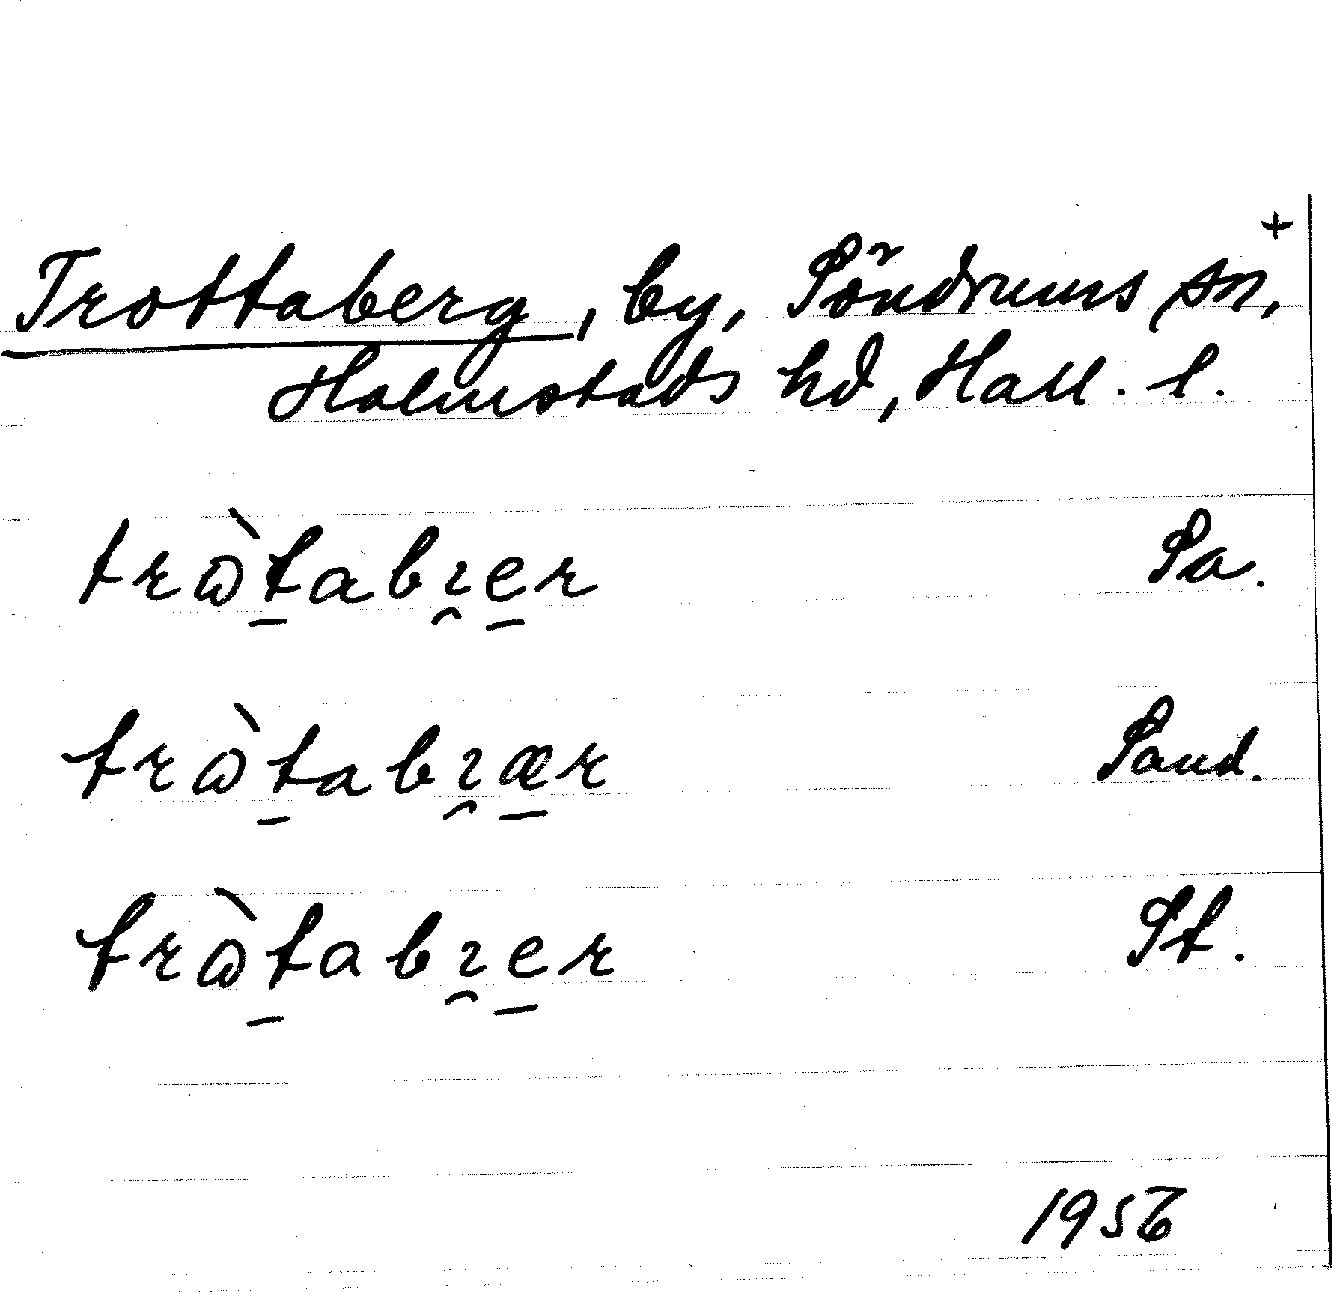 +
Trottaberg, by, Söndrums sn,
Holmstads hd, Hall. l.
trɷ̀t̠abɿ̯e̠r Sa.
trɷ̀t̠abɿ̯æ̠r Sand.
trɷ̀t̠abɿ̯e̠r St.
1956